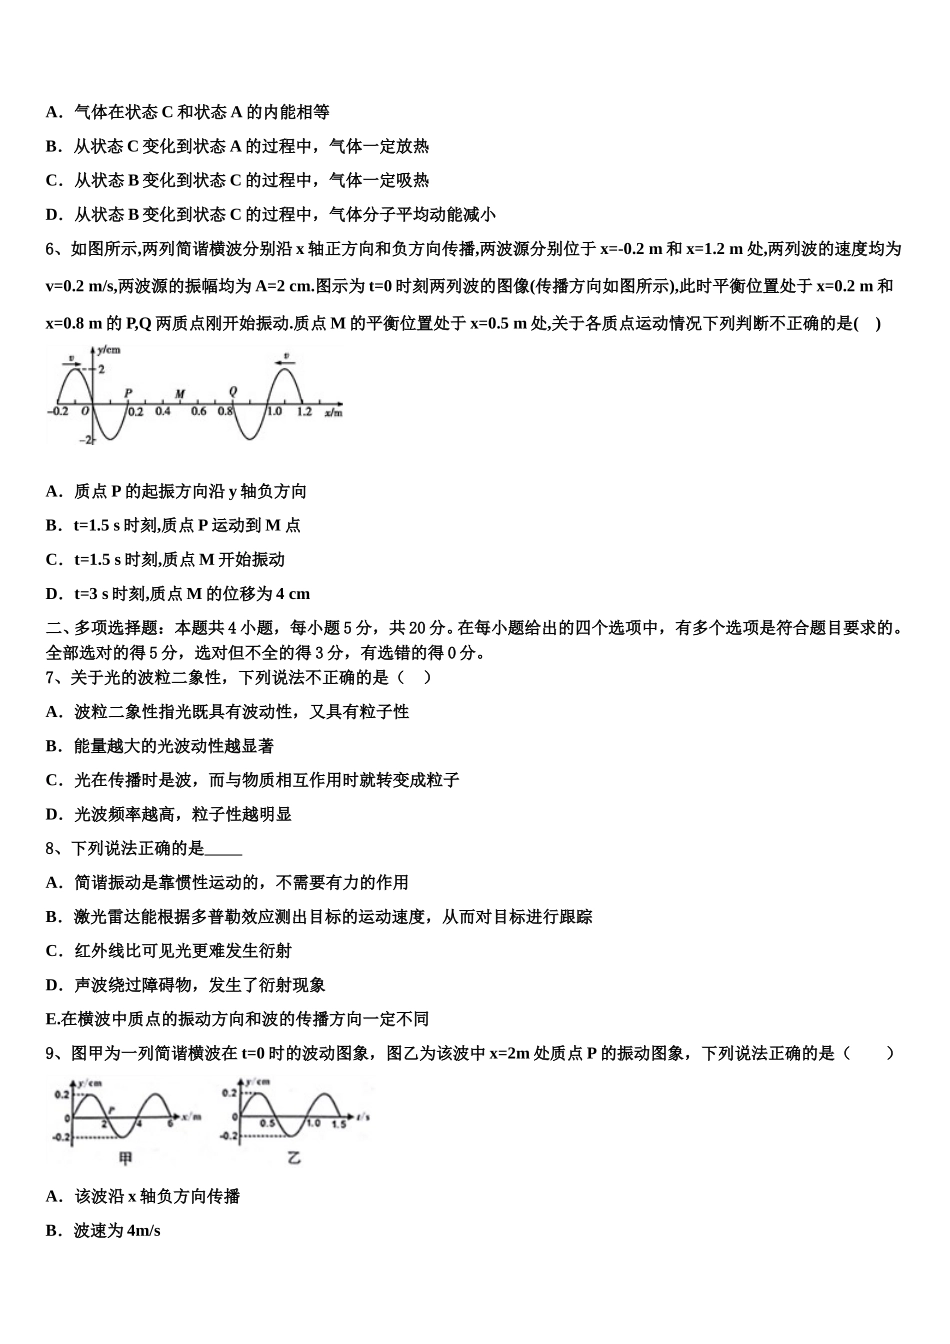 A．气体在状态 C 和状态 A 的内能相等
B．从状态 C 变化到状态 A 的过程中，气体一定放热
C．从状态 B 变化到状态 C 的过程中，气体一定吸热
D．从状态 B 变化到状态 C 的过程中，气体分子平均动能减小
6、如图所示,两列简谐横波分别沿 x 轴正方向和负方向传播,两波源分别位于 x=-0.2 m 和 x=1.2 m 处,两列波的速度均为
v=0.2 m/s,两波源的振幅均为 A=2 cm.图示为 t=0 时刻两列波的图像(传播方向如图所示),此时平衡位置处于 x=0.2 m 和
x=0.8 m 的 P,Q 两质点刚开始振动.质点 M 的平衡位置处于 x=0.5 m 处,关于各质点运动情况下列判断不正确的是(　)
y/cm
v
v
2
P
M
Q
-0.2 O 0.2 0.4 0.6 0.8 1.0 1.2 x/m
-2
A．质点 P 的起振方向沿 y 轴负方向
B．t=1.5 s 时刻,质点 P 运动到 M 点
C．t=1.5 s 时刻,质点 M 开始振动
D．t=3 s 时刻,质点 M 的位移为 4 cm
二、多项选择题：本题共 4 小题，每小题 5 分，共 20 分。在每小题给出的四个选项中，有多个选项是符合题目要求的。
全部选对的得 5 分，选对但不全的得 3 分，有选错的得 0 分。
7、关于光的波粒二象性，下列说法不正确的是（　）
A．波粒二象性指光既具有波动性，又具有粒子性
B．能量越大的光波动性越显著
C．光在传播时是波，而与物质相互作用时就转变成粒子
D．光波频率越高，粒子性越明显
8、下列说法正确的是_____
A．简谐振动是靠惯性运动的，不需要有力的作用
B．激光雷达能根据多普勒效应测出目标的运动速度，从而对目标进行跟踪
C．红外线比可见光更难发生衍射
D．声波绕过障碍物，发生了衍射现象
E.在横波中质点的振动方向和波的传播方向一定不同
9、图甲为一列简谐横波在 t=0 时的波动图象，图乙为该波中 x=2m 处质点 P 的振动图象，下列说法正确的是（　　）
y/cm
0.2
P
0
2 4 6 x/m
-0.2
甲
y/cm
0.2
0
0.5 1.0 1.5 t/s
-0.2
乙
A．该波沿 x 轴负方向传播
B．波速为 4m/s